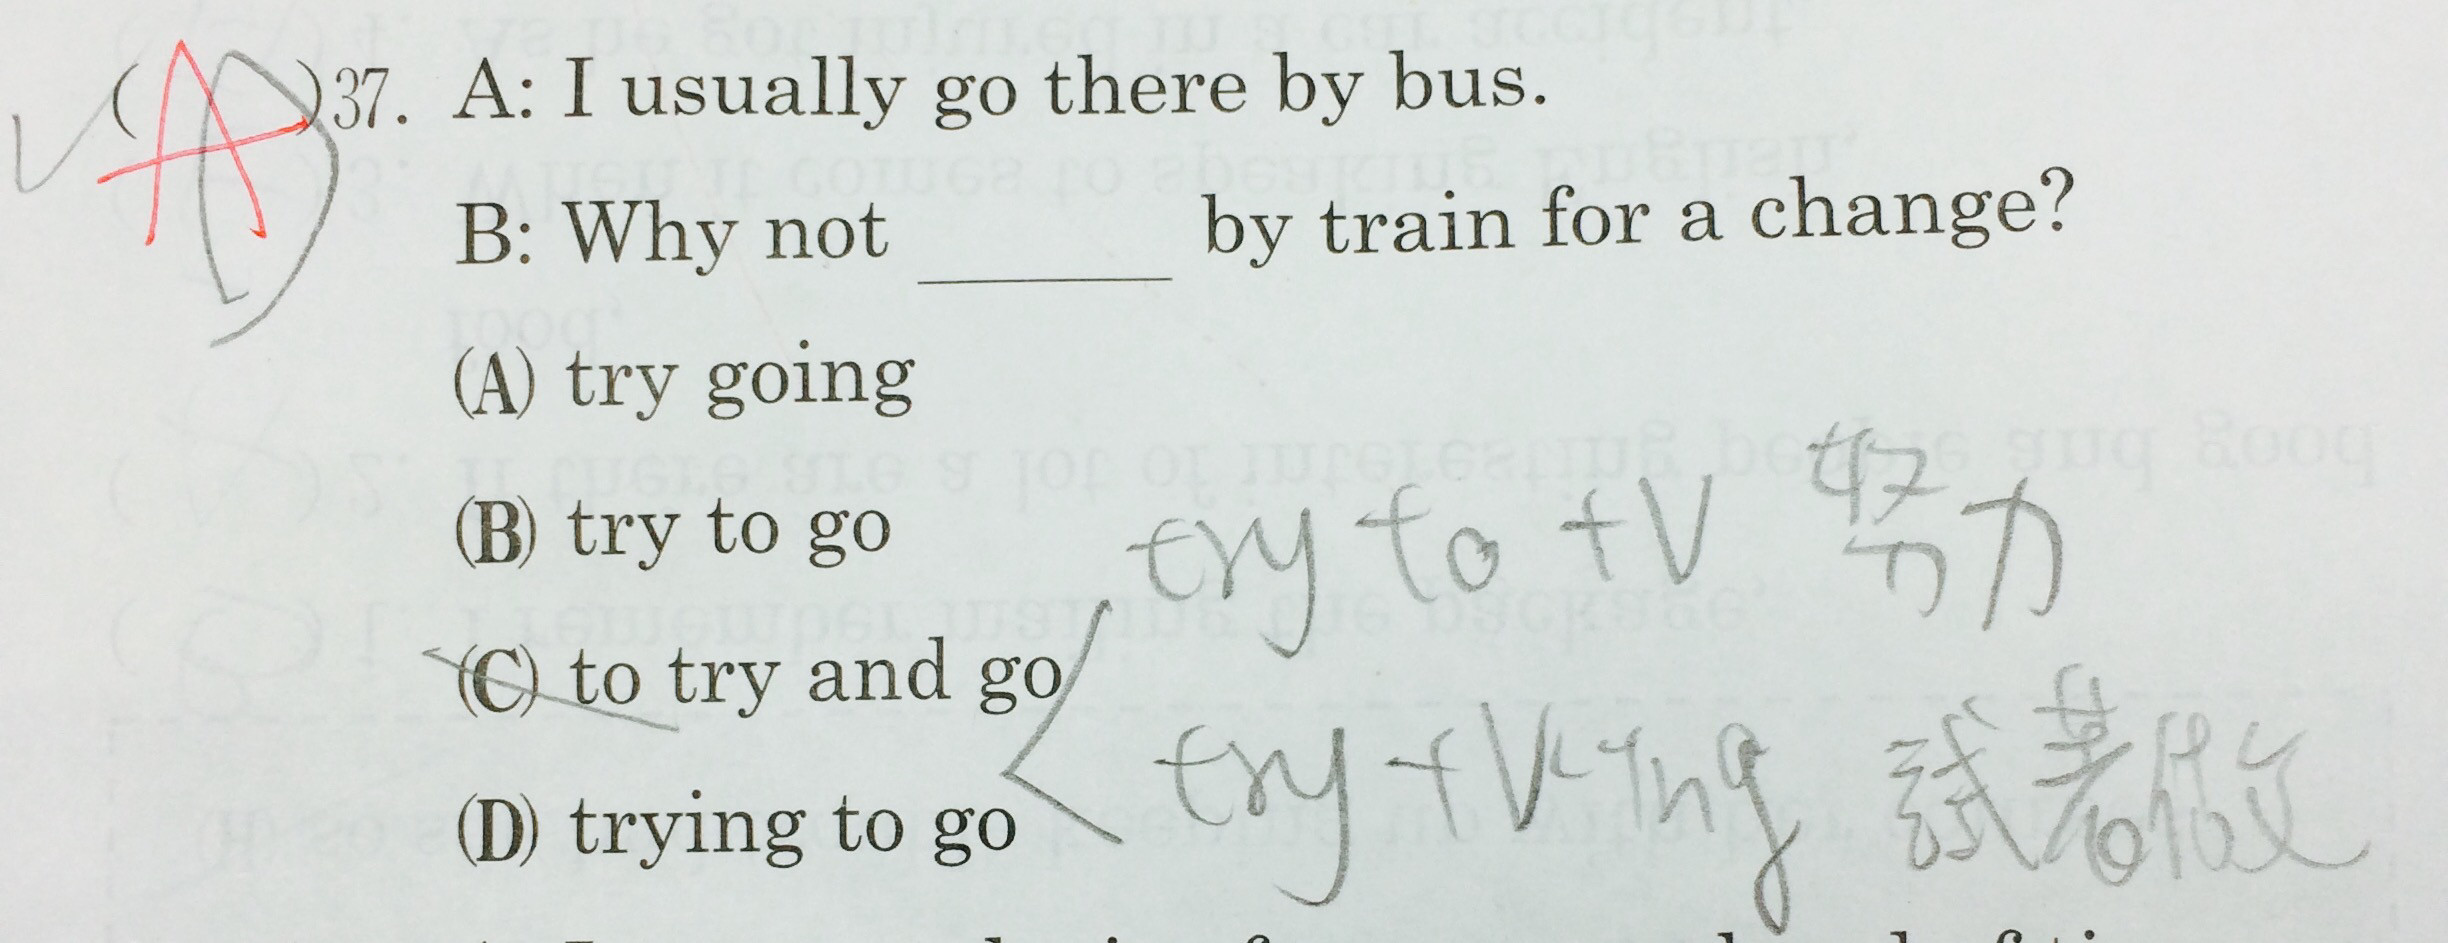 (A)37. A: I usually go there by bus.
B: Why not ______ by train for a change?
(A) try going
(B) try to go
(C) to try and go
(D) trying to go
try to +V 努力
try +V-ing 試著做